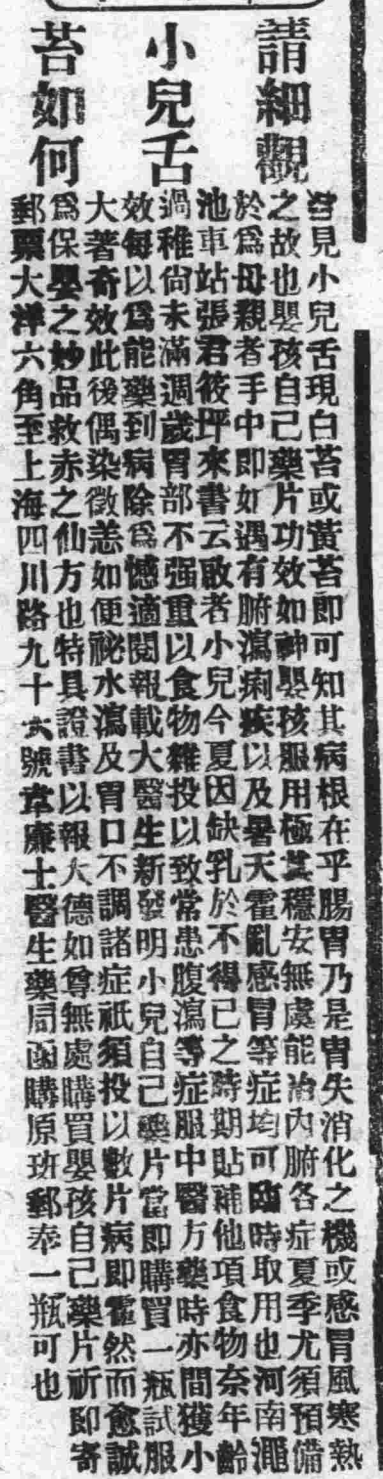 請細觀
小兒舌
苔如何
君見小兒舌現白苔或黃苔即可知其病根在乎腸胃乃是胃失消化之機或感冒風寒熱
之故也嬰孩自己藥片功效如神嬰孩服用極其穩安無虞能治內腑各症夏季尤須預備
於爲母親者手中即如遇有腑瀉痢疾以及暑天霍亂感冒等症均可臨時取用也河南澠
池車站張君筱坪來書云敝者小兒今夏因缺乳於不得已之時期貼補他項食物奈年齡
過稚尙未滿週歲胃部不强重以食物雜投以致常患腹瀉等症服中醫方藥時亦間獲小
效每以爲能藥到病除爲憾適閱報載大醫生新發明小兒自己藥片當即購買一瓶試服
大著奇效此後偶染微恙如便祕水瀉及胃口不調諸症祇須投以數片病即霍然而愈誠
爲保嬰之妙品救赤之仙方也特具證書以報大德如尊無處購買嬰孩自己藥片祈即寄
郵票大洋六角至上海四川路九十六號韋廉士醫生藥局函購原班郵奉一瓶可也